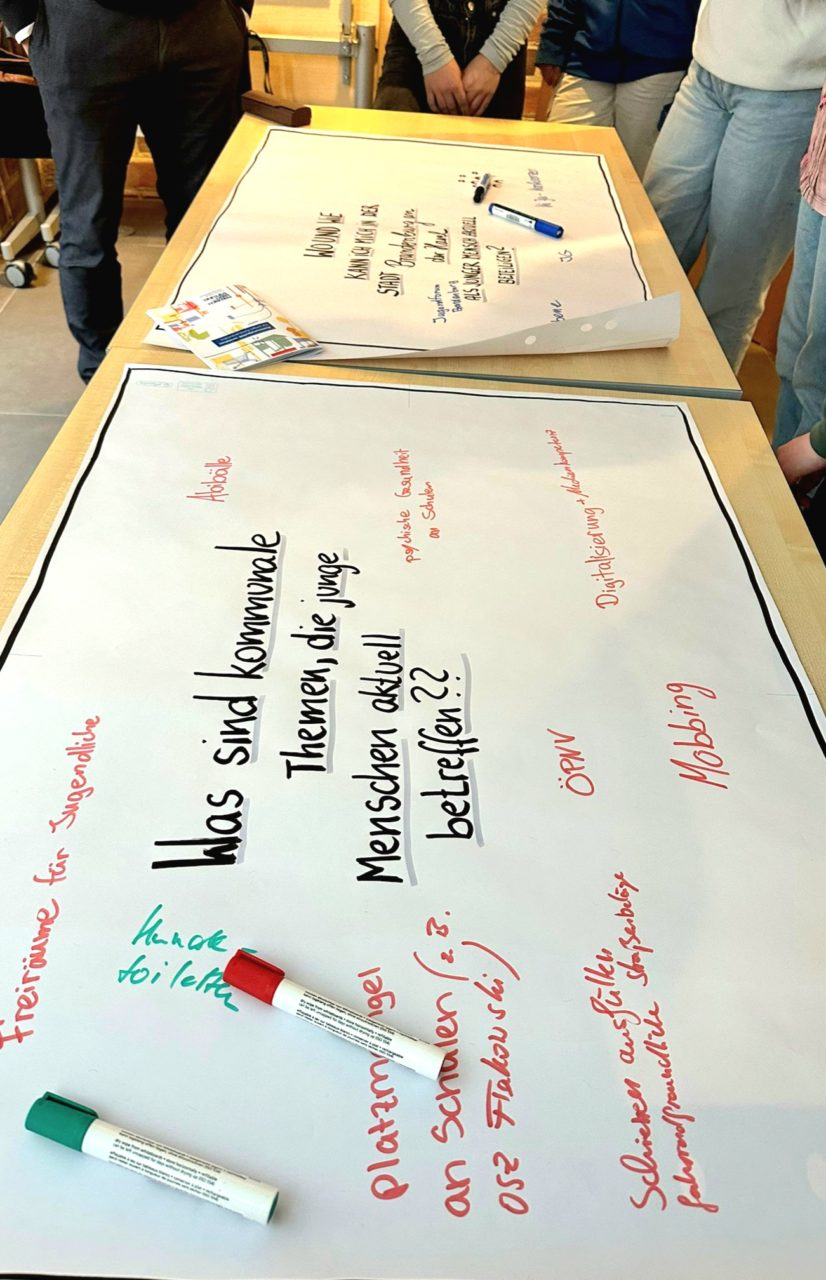 WO UND WIE
KANN ICH MICH IN DER
STADT Brandenburg an
der Havel
ALS JUNGER MENSCH AKTUELL
BETEILIGEN?
Jugendforum
Brandenburg
JG
Abibälle
psychische Gesundheit
an Schulen
Digitalisierung + Medienkompetenz
Was sind kommunale
Themen, die junge
Menschen aktuell
betreffen??
Freiräume für Jugendliche
ÖPNV
Mobbing
Hunde-
toiletten
Platzmangel
an Schulen (z.B.
OSZ Flakowski)
Schienen ausfüllen
fahrradfreundliche Straßenbeläge